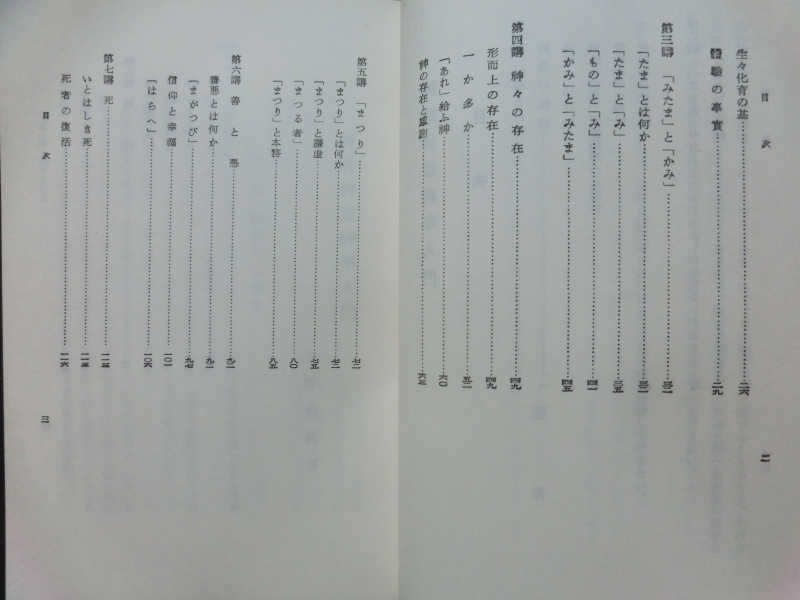 目次
二
生々化育の基……………二六
體驗の事實……………二九
第三講 「みたま」と「かみ」……………三二
「たま」とは何か……………三二
「たま」と「み」……………三五
「もの」と「み」……………四一
「かみ」と「みたま」……………四五
第四講 神々の存在……………四九
形而上の存在……………四九
一か多か……………五二
「あれ」給ふ神……………六〇
神の存在と感謝……………六三
第五講 「まつり」……………七二
「まつり」とは何か……………七二
「まつり」と謙虚……………七五
「まつる者」……………八〇
「まつり」と本務……………八五
第六講 善と惡……………九一
善惡とは何か……………九一
「まがつび」……………九七
信仰と幸福……………一〇一
「はらへ」……………一〇六
第七講 死……………一一三
いとはしき死……………一一三
死者の復活……………一一六
目次
三